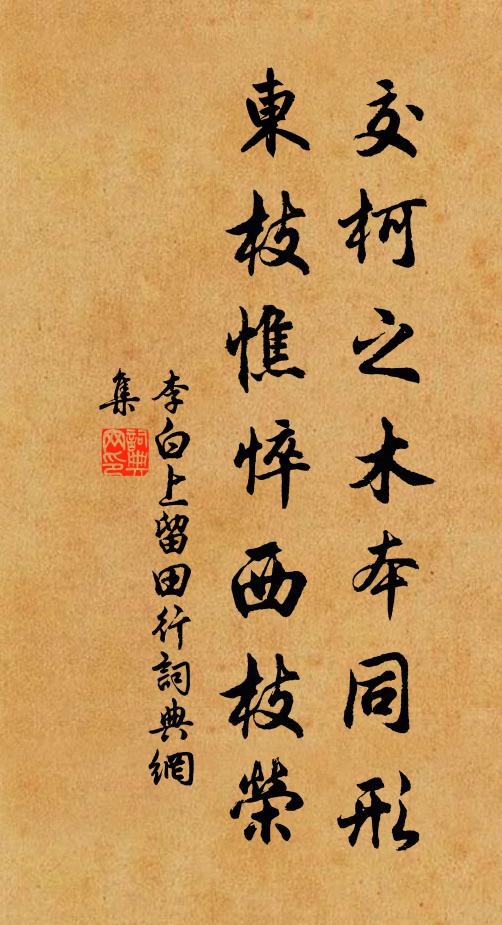 交柯之木本同形
東枝憔悴西枝榮
李白上留田行詞典網
集
詞典
网印